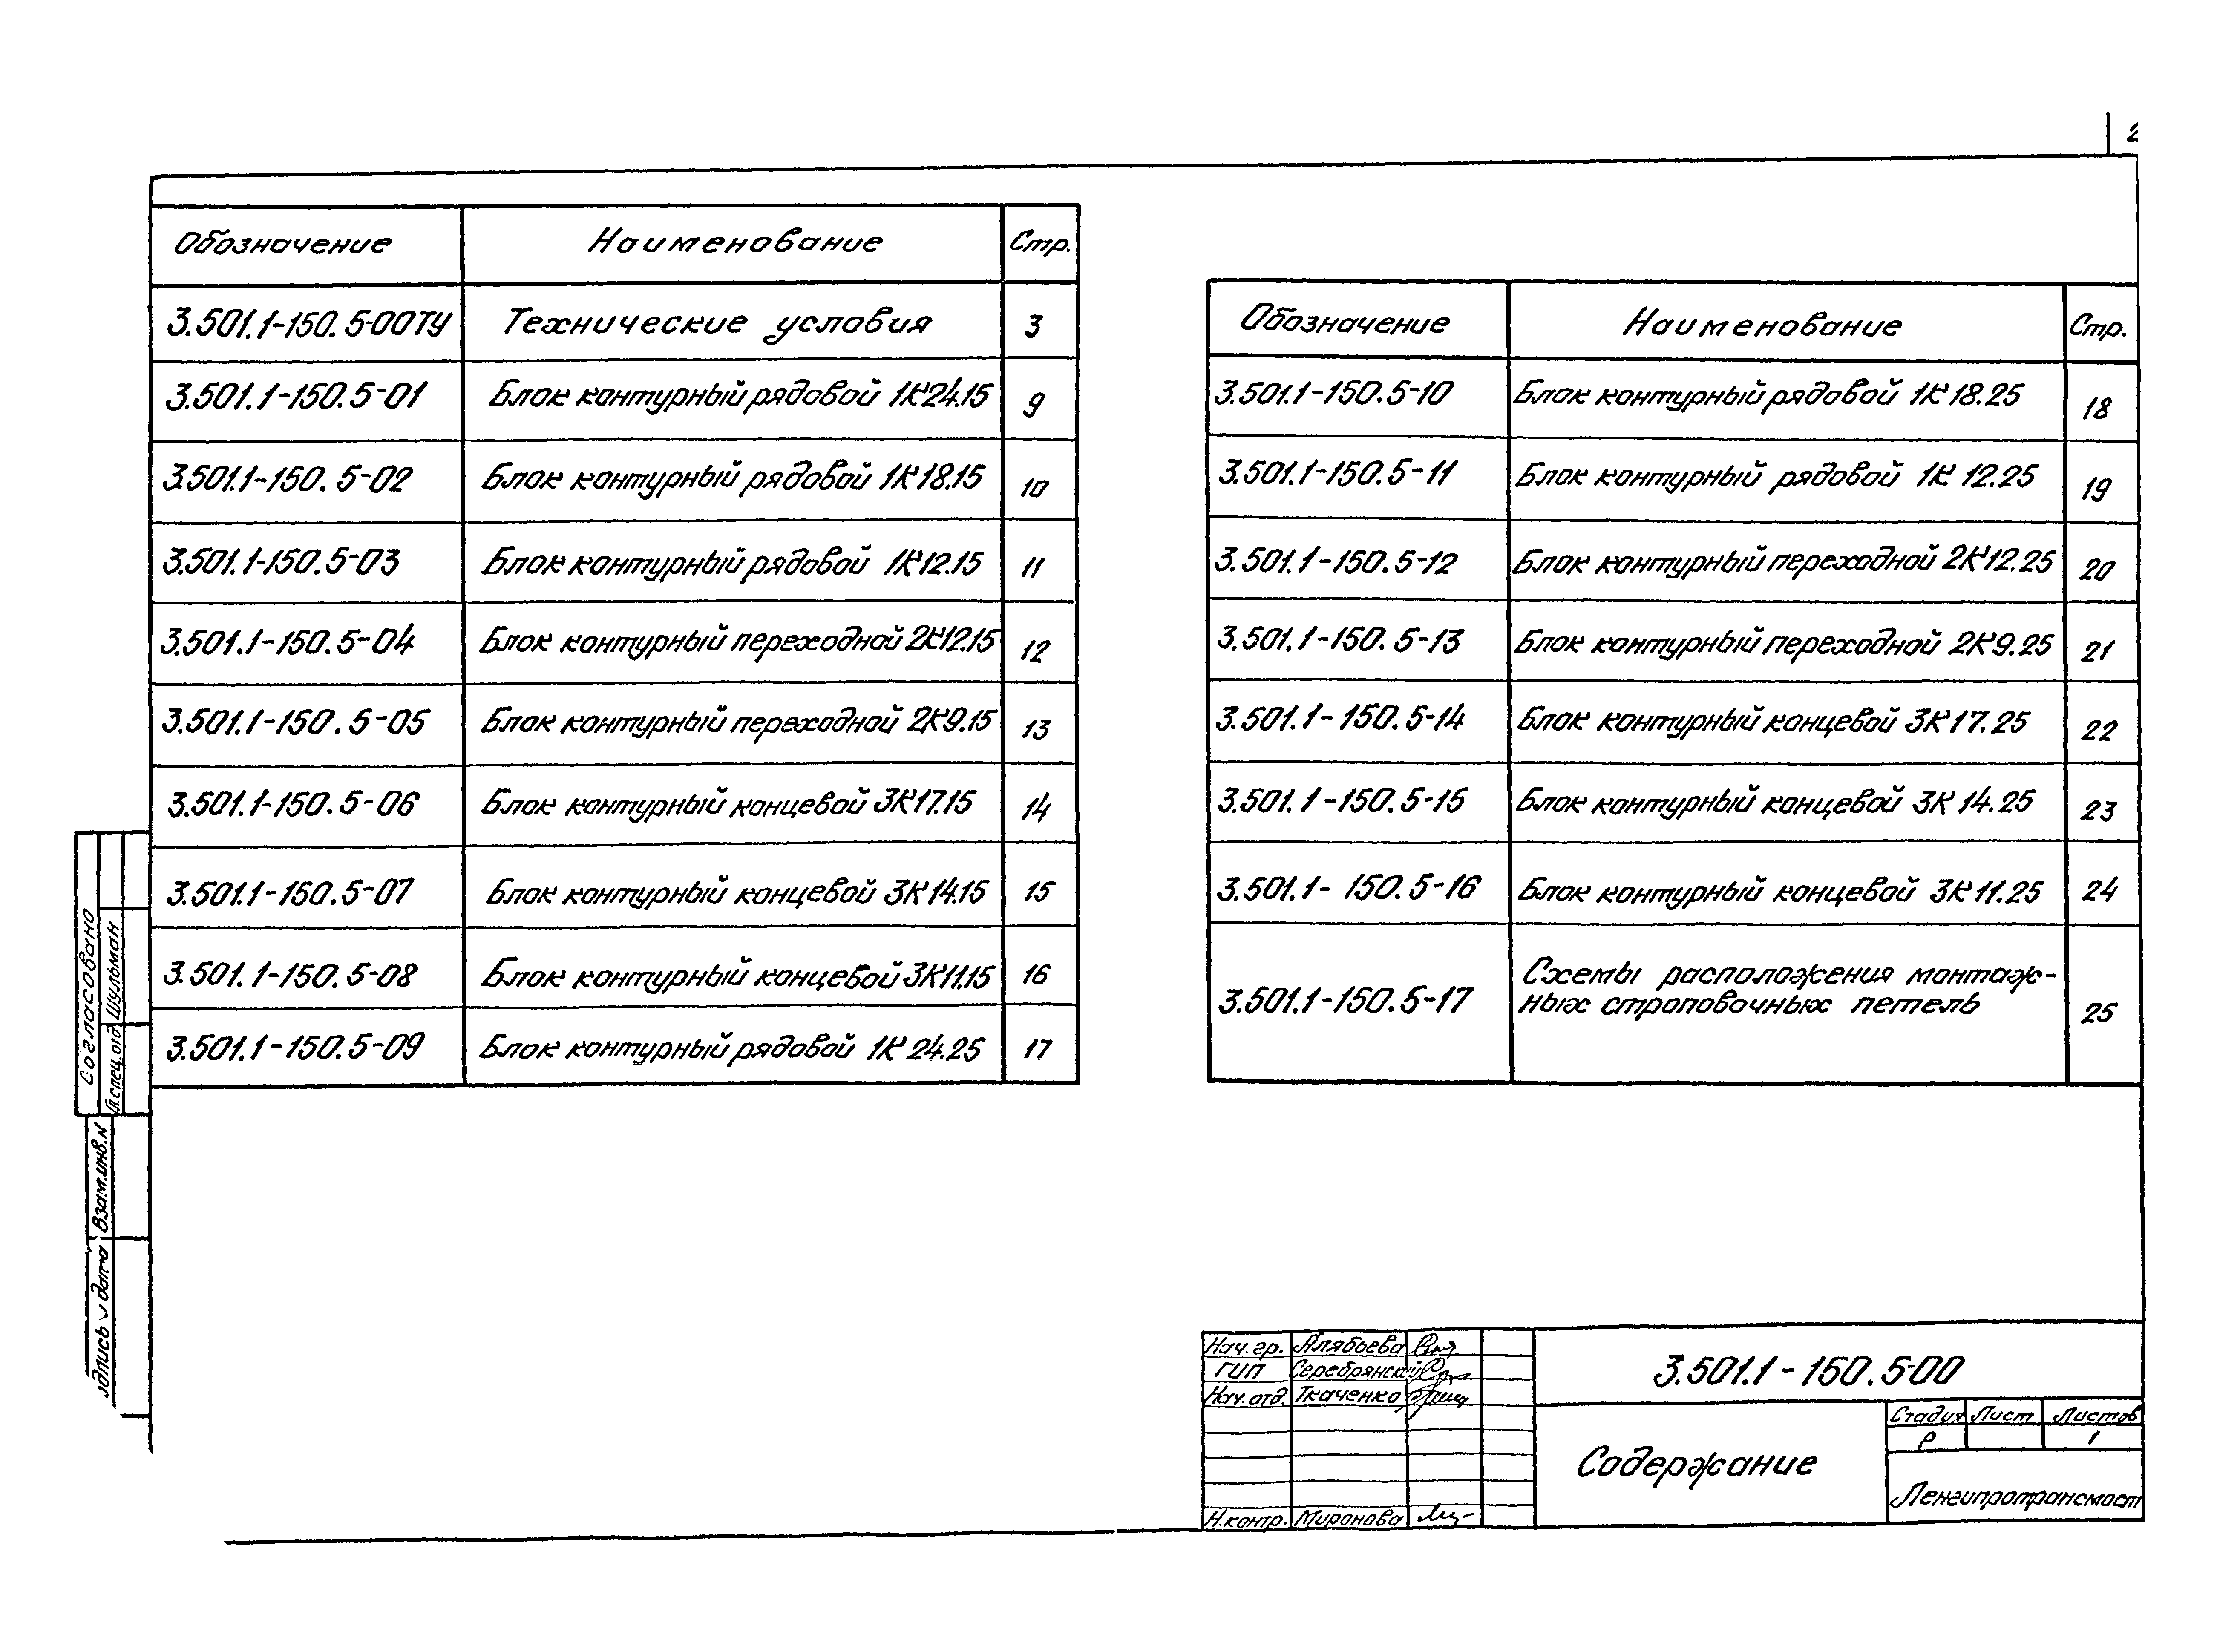 2
Обозначение Наименование Стр.
3.501.1-150.5-00ТУ Технические условия 3
3.501.1-150.5-01 Блок контурный рядовой 1К24.15 9
3.501.1-150.5-02 Блок контурный рядовой 1К18.15 10
3.501.1-150.5-03 Блок контурный рядовой 1К12.15 11
3.501.1-150.5-04 Блок контурный переходной 2К12.15 12
3.501.1-150.5-05 Блок контурный переходной 2К9.15 13
3.501.1-150.5-06 Блок контурный концевой 3К17.15 14
3.501.1-150.5-07 Блок контурный концевой 3К14.15 15
3.501.1-150.5-08 Блок контурный концевой 3К11.15 16
3.501.1-150.5-09 Блок контурный рядовой 1К24.25 17
Обозначение Наименование Стр.
3.501.1-150.5-10 Блок контурный рядовой 1К18.25 18
3.501.1-150.5-11 Блок контурный рядовой 1К 12.25 19
3.501.1-150.5-12 Блок контурный переходной 2К12.25 20
3.501.1-150.5-13 Блок контурный переходной 2К9.25 21
3.501.1-150.5-14 Блок контурный концевой 3К17.25 22
3.501.1-150.5-15 Блок контурный концевой 3К 14.25 23
3.501.1-150.5-16 Блок контурный концевой 3К 11.25 24
Схемы расположения монтаж-
3.501.1-150.5-17 ных строповочных петель 25
Согласовано
Гл.спец.отд Шульман
Взам.инв.N
одпись и дата
Нач.гр. Алябьева
ГИП Серебрянский
Нач.отд. Ткаченко
Н.контр. Миронова
3.501.1-150.5-00
Содержание
Стадия Лист Листов
Р 1
Ленгипротрансмост